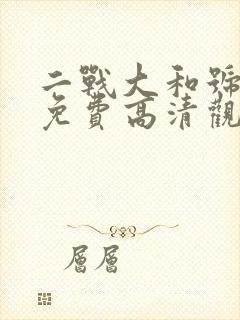 二戰大和號
免費高清觀
層層